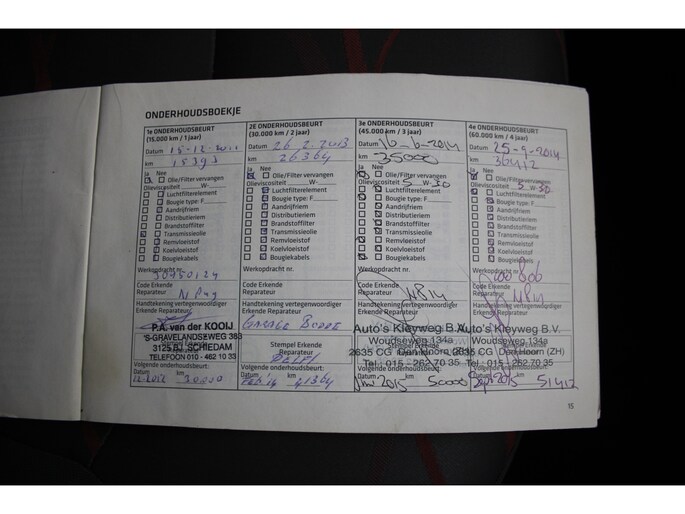 ONDERHOUDSBOEKJE
1e ONDERHOUDSBEURT
(15.000 km / 1 jaar)
Datum 15-12-2011
km 15393
Ja Nee
Olie/Filter vervangen
Olieviscositeit W-
Luchtfilterelement
Bougie type: F
Aandrijfriem
Distributieriem
Brandstoffilter
Transmissieolie
Remvloeistof
Koelvloeistof
Bougiekabels
Werkopdracht nr.
Code Erkende
Reparateur
Handtekening vertegenwoordiger
Erkende Reparateur
P.A. van der KOOIJ
'S-GRAVELANDSEWEG 383
3125 BJ SCHIEDAM
TELEFOON 010 - 462 10 33
Volgende onderhoudsbeurt:
Datum km
12-2012 30.000
2E ONDERHOUDSBEURT
(30.000 km / 2 jaar)
Datum 26-2-2013
km 26364
Ja Nee
Olie/Filter vervangen
Olieviscositeit W-
Luchtfilterelement
Bougie type: F
Aandrijfriem
Distributieriem
Brandstoffilter
Transmissieolie
Remvloeistof
Koelvloeistof
Bougiekabels
Werkopdracht nr.
Code Erkende
Reparateur
Handtekening vertegenwoordiger
Erkende Reparateur
GARAGE
Stempel Erkende
Reparateur
DELFT
Volgende onderhoudsbeurt:
Datum km
Feb '14 41364
3e ONDERHOUDSBEURT
(45.000 km / 3 jaar)
Datum 10-6-2014
km 35000
Ja Nee
Olie/Filter vervangen
Olieviscositeit 5 W-30
Luchtfilterelement
Bougie type: F
Aandrijfriem
Distributieriem
Brandstoffilter
Transmissieolie
Remvloeistof
Koelvloeistof
Bougiekabels
Werkopdracht nr.
Code Erkende
Reparateur
Handtekening vertegenwoordiger
Erkende Reparateur
Auto's Kleyweg B.V.
Woudseweg 134a
2635 CG Den Hoorn (ZH)
Tel.: 015 - 262 70 35
Volgende onderhoudsbeurt:
Datum km
2015 50000
4e ONDERHOUDSBEURT
(60.000 km / 4 jaar)
Datum 25-9-2014
km 36412
Ja Nee
Olie/Filter vervangen
Olieviscositeit 5 W-30
Luchtfilterelement
Bougie type: F
Aandrijfriem
Distributieriem
Brandstoffilter
Transmissieolie
Remvloeistof
Koelvloeistof
Bougiekabels
Werkopdracht nr.
Code Erkende
Reparateur
Handtekening vertegenwoordiger
Erkende Reparateur
Auto's Kleyweg B.V.
Woudseweg 134a
2635 CG Den Hoorn (ZH)
Tel.: 015 - 262 70 35
Volgende onderhoudsbeurt:
Datum km
Sept 2015 51412
15